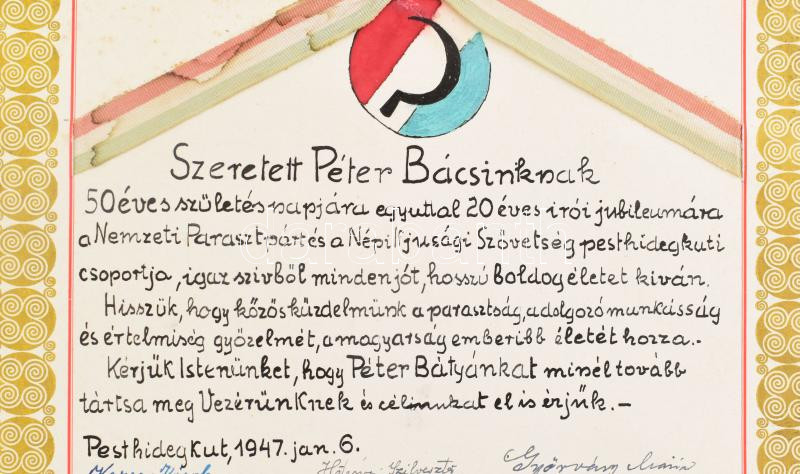 Szeretett Péter Bácsinknak
50 éves születésnapjára egyuttal 20 éves irói jubileumára
a Nemzeti Parasztpárt és a Népi Ifjusági Szövetség pesthidegkuti
csoportja, igaz szivből minden jót, hosszú boldog életet kiván.
Hisszük, hogy közös küzdelmünk a parasztság, a dolgozó munkásság
és értelmiség győzelmét, a magyarság emberibb életét hozza.-
Kérjük Istenünket, hogy Péter Bátyánkat minél tovább
tartsa meg Vezérünknek és célunkat el is érjük.-
Pesthidegkut, 1947. jan. 6.
Szilveszter Györvány Mária